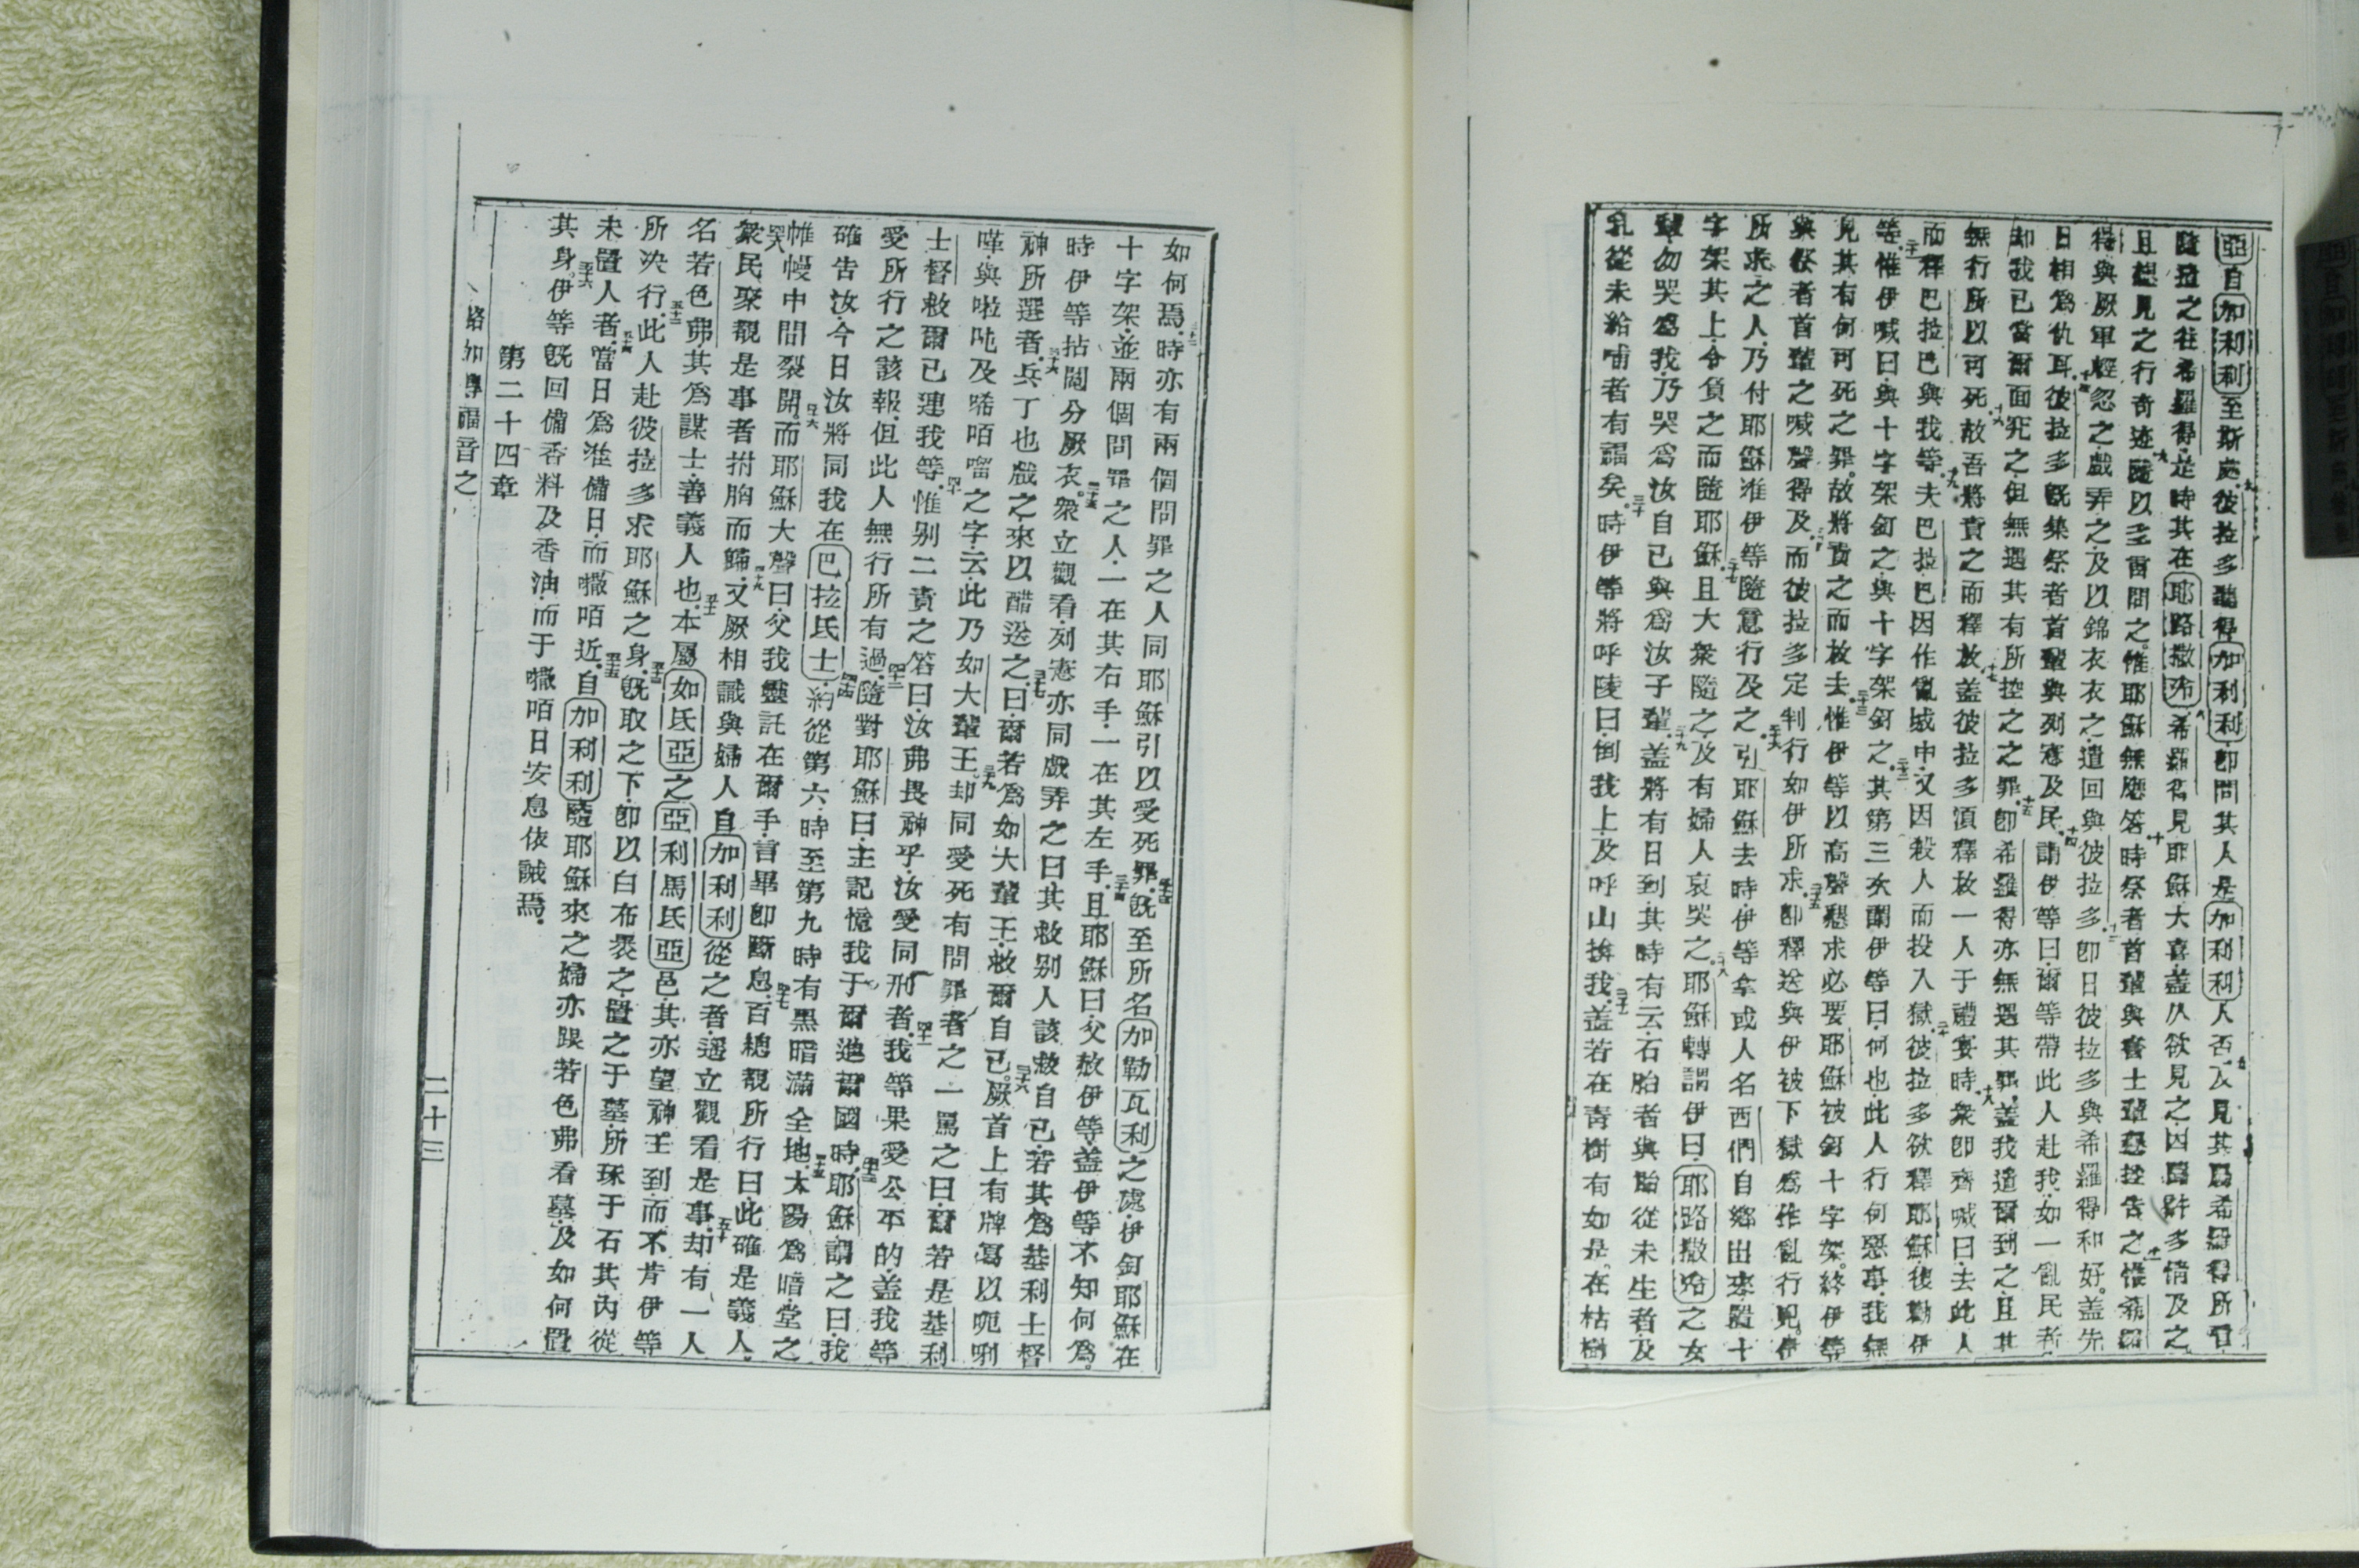 亞自加利利至斯處彼拉多聽得加利利卽問其人是加利利人否及見其屬希羅得所管
隨拉之往希羅得是時其在耶路撒冷希羅得見耶穌大喜蓋久欲見之因爲許多情及之
且想見之行奇迹隨以多言問之惟耶穌無應答時祭者首輩與書士輩懇控告之惟希羅
得與厥軍輕忽之戲弄之及以錦衣衣之遣回與彼拉多卽日彼拉多與希羅得和好蓋先
日相爲仇耳彼拉多旣集祭者首輩與列憲及民謂伊等曰爾等帶此人赴我如一亂民者
却我已當爾面究之但無遇其有所控之之罪卽希羅得亦無遇其罪蓋我遣爾到之且其
無行所以可死故吾將責之而釋放蓋彼拉多須釋放一人于禮宴時衆卽齊喊曰去此人
而釋巴拉巴與我等夫巴拉巴因作亂城中又因殺人而投入獄彼拉多欲釋耶穌復勸伊
等惟伊喊曰與十字架釘之與十字架釘之其第三次謂伊等曰何也此人行何惡事我無
見其有何可死之罪故將責之而放去惟伊等以高聲懇求必要耶穌被釘十字架終伊等
與祭者首輩之喊聲得及而彼拉多定判行如伊所求卽釋送與伊被下獄爲作亂行兇伊
所求之人乃付耶穌准伊等隨意行及之引耶穌去時伊等拿或人名西們自鄉出來置十
字架其上令負之而隨耶穌且大衆隨之及有婦人哀哭之耶穌轉謂伊曰耶路撒冷之女
輩勿哭爲我乃哭爲汝自己與爲汝子輩蓋將有日到其時有云石胎者與胎從未生者及
乳從未給哺者有福矣時伊等將呼陵曰倒我上及呼山揜我蓋若在靑樹有如是在枯樹
如何焉時亦有兩個問罪之人同耶穌引以受死罪旣至所名加勒瓦利之處伊釘耶穌在
十字架並兩個問罪之人一在其右手一在其左手且耶穌曰父赦伊等蓋伊等不知何爲
時伊等拈鬮分厥衣衆立觀看列憲亦同戲弄之曰其救別人該救自己若其爲基利士督
神所選者兵丁也戲之來以醋送之曰爾若爲如大輩王救爾自己厥首上有牌寫以呃唎
嘩與啦吔及唏咟嚠之字云此乃如大輩王却同受死有問罪者之一罵之曰爾若是基利
士督救爾已連我等惟別二責之答曰汝弗畏神乎汝受同刑者我等果受公平的蓋我等
愛所行之該報但此人無行所有過隨對耶穌曰主記憶我于爾進爾國時耶穌謂之曰我
確告汝今日汝將同我在巴拉氐士約從第六時至第九時有黑暗滿全地太陽爲暗堂之
帷幔中間裂開而耶穌大聲曰父我靈託在爾手言畢卽斷息百總覩所行曰此確是義人
衆民聚覩是事者拊胸而歸又厥相識與婦人自加利利從之者遥立觀看是事却有一人
名若色弗其爲謀士善義人也本屬如氐亞之亞利馬氐亞邑其亦望神王到而不肯伊等
所決行此人赴彼拉多求耶穌之身旣取之下卽以白布裹之置之于墓所琢于石其內從
未置人者當日爲淮備日而囕咟近自加利利隨耶穌來之婦亦跟若色弗看墓及如何置
其身伊等旣回備香料及香油而于囕咟日安息依誡焉
第二十四章
路加傳福音之
二十三